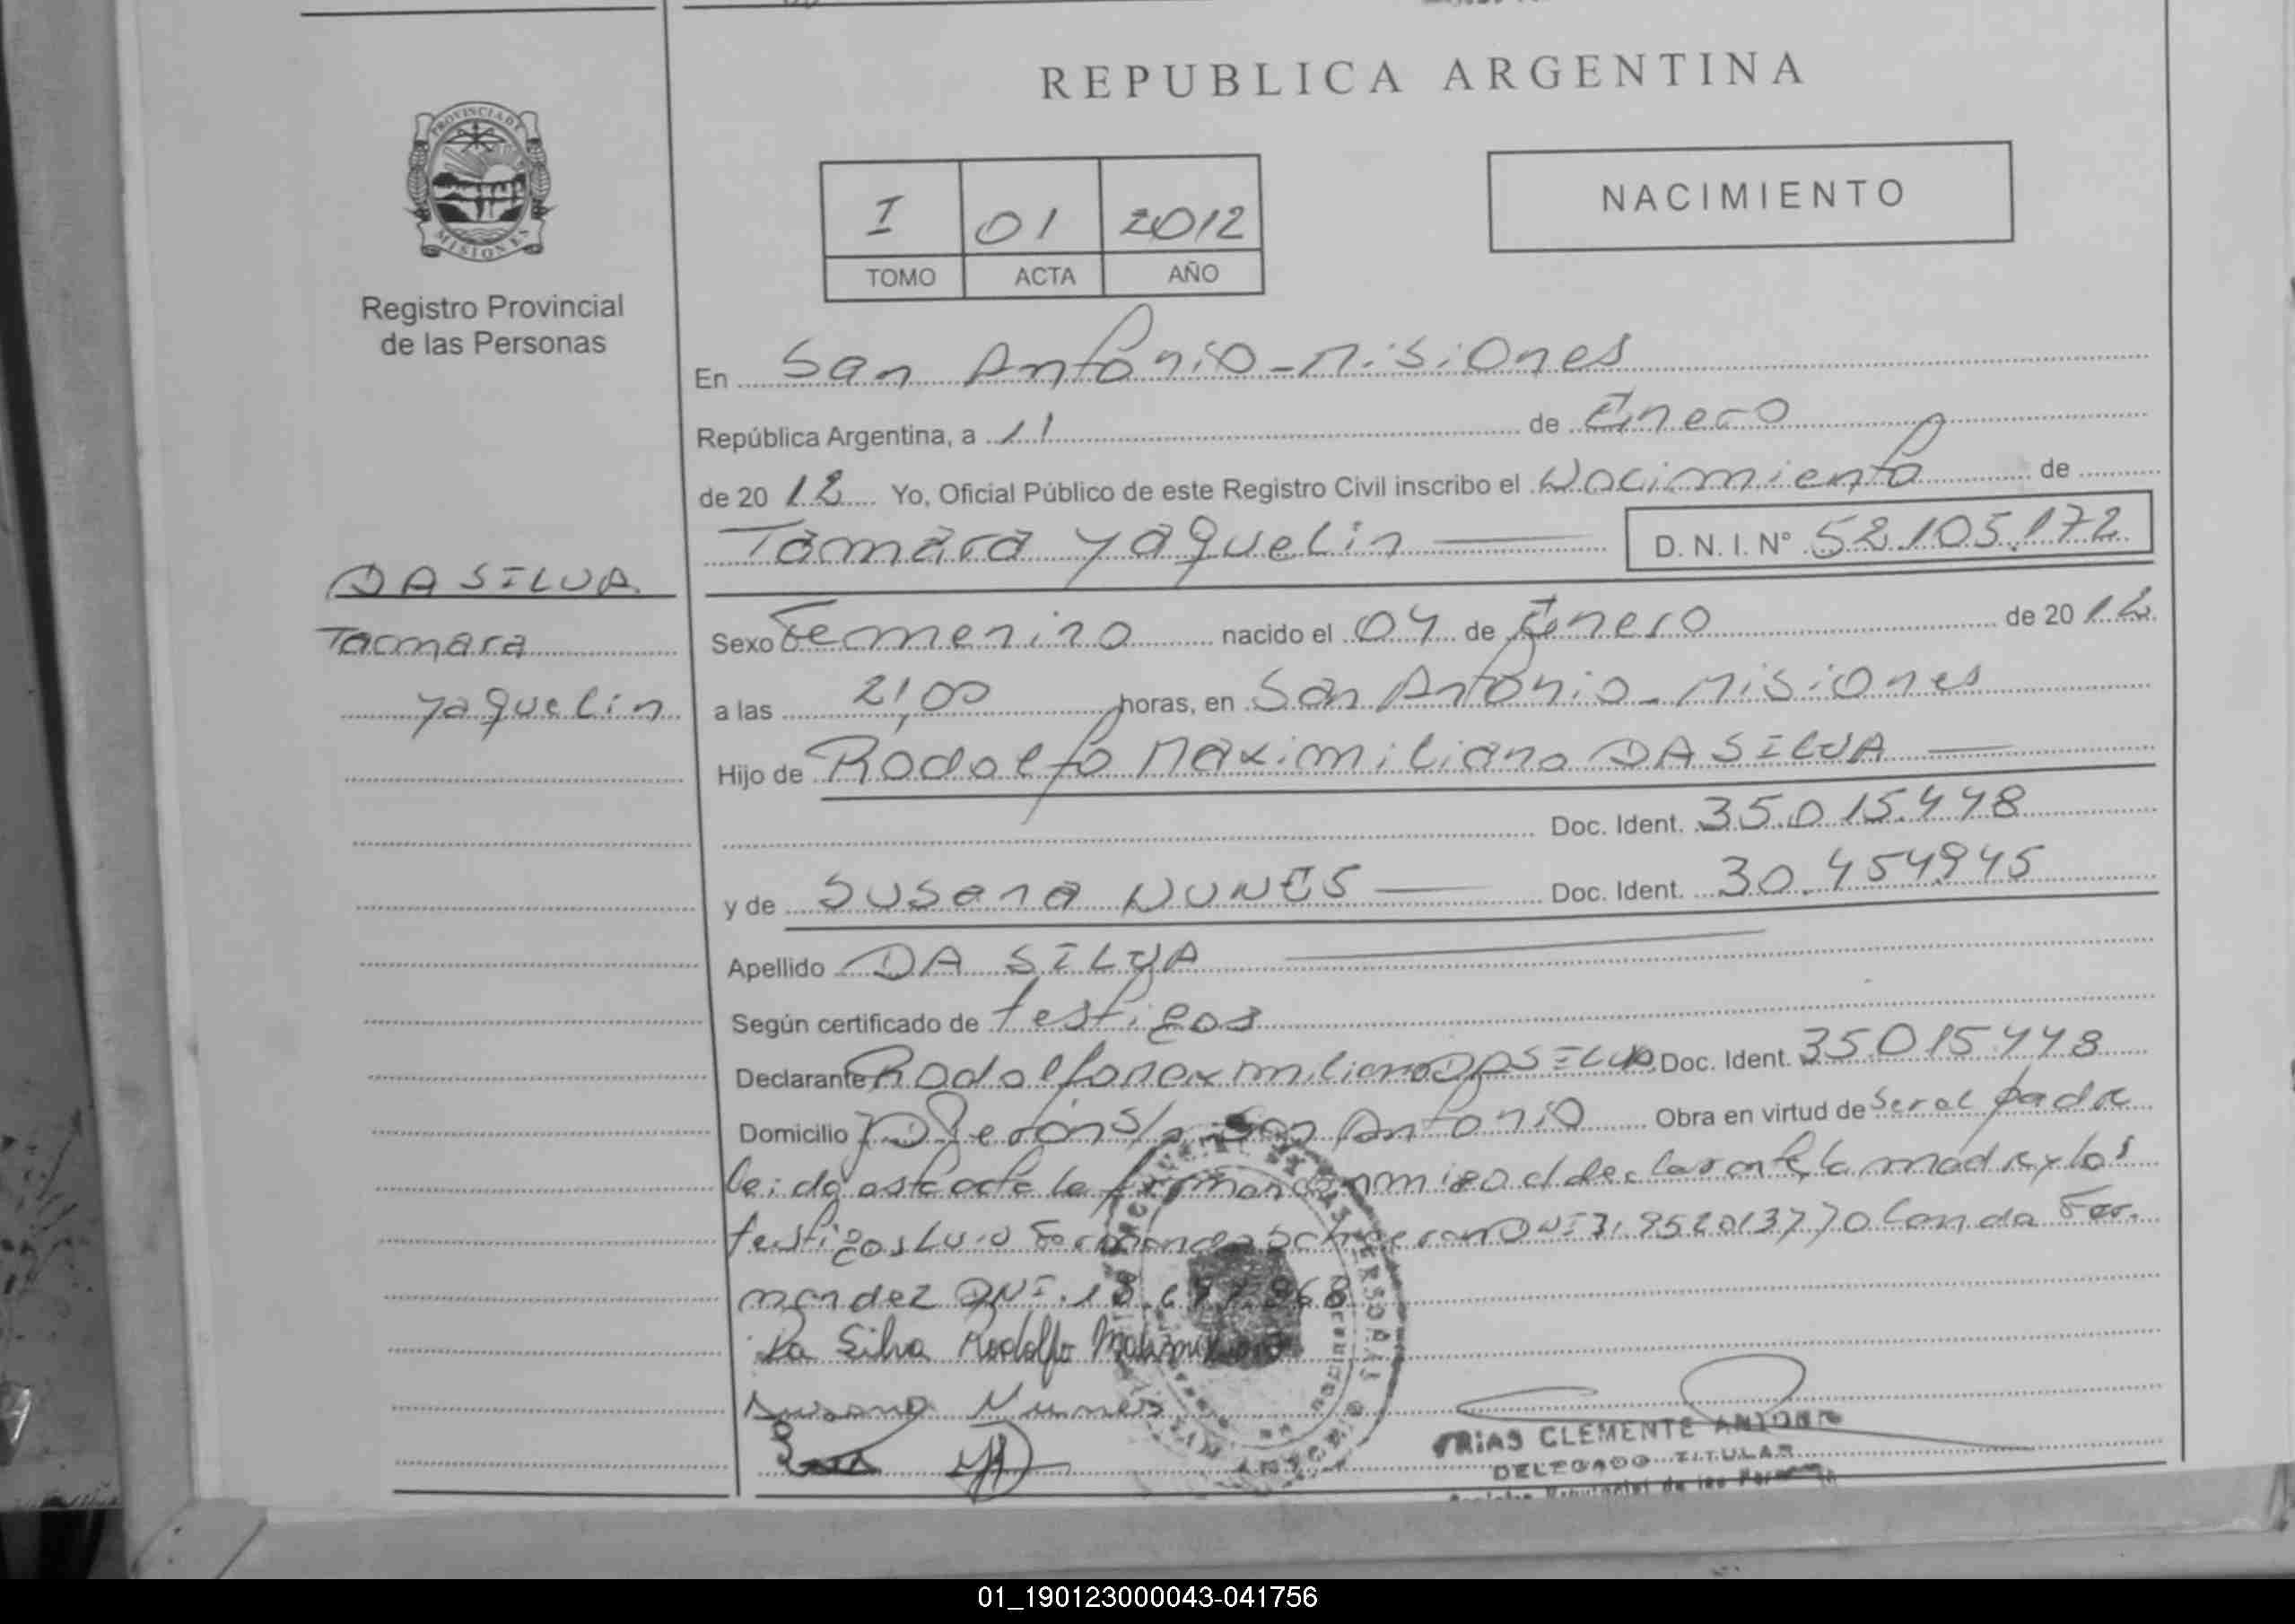 REPUBLICA ARGENTINA
PROVINCIA DE
MISIONES
Registro Provincial
de las Personas
I 01 2012
TOMO ACTA AÑO
NACIMIENTO
En San Antonio - Misiones
República Argentina, a 11 de Enero
de 20 12 Yo, Oficial Público de este Registro Civil inscribo el Nacimiento de
Tamara Yaquelin D.N.I. N° 52.105.172
DA SILVA
Tamara
Yaquelin
Sexo Femenino nacido el 04 de Enero de 20 12
a las 21,00 horas, en San Antonio - Misiones
Hijo de Rodolfo Maximiliano DA SILVA
Doc. Ident. 35.015.448
y de Susana NUNES Doc. Ident. 30.454.945
Apellido DA SILVA
Según certificado de testigos
Declarante Rodolfo Maximiliano DA SILVA Doc. Ident. 35.015.448
Domicilio San Antonio Obra en virtud de ser el padre
leida esta acta la firman conmigo el declarante, la madre y los
testigos Luis Fer
mandez DNI. 18.
Da Silva Rodolfo Maximiliano
Susana Nunes
FRIAS CLEMENTE ANTONIO
DELEGADO TITULAR
01_190123000043-041756